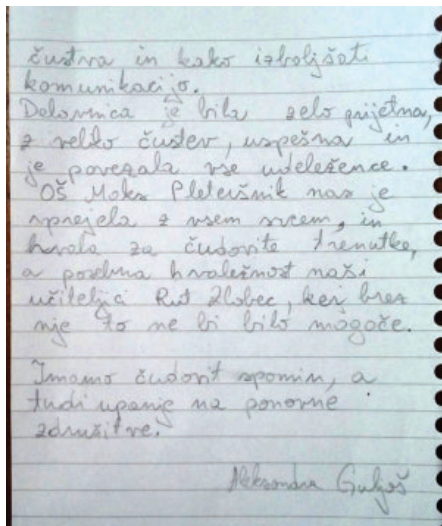 čustva in kako izboljšati
komunikacijo.
Delavnica je bila zelo prijetna,
z veliko čustev, uspešna in
je povezala vse udeležence.
OŠ Maks Pleteršnik nas je
sprejela z vsem srcem, in
hvala za čudovite trenutke,
a posebna hvaležnost naši
učiteljici Rut Zlobec, kej brez
nje to ne bi bilo mogoče.
Imamo čudovit spomin, a
tudi upanje na ponovne
združitve.
Aleksandra Guljoš